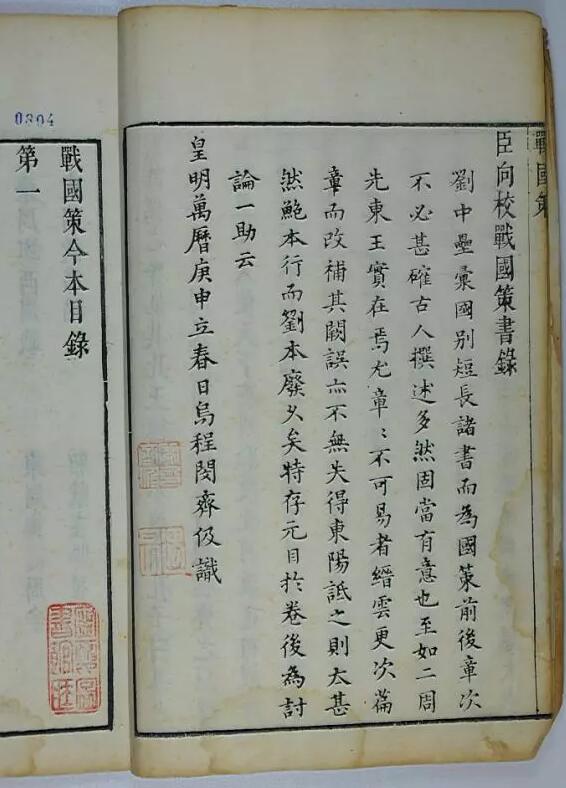 戰國策
臣向校戰國策書錄
劉中壘彙國別短長諸書而為國策前後章次
不必甚確古人撰述多然固當有意也至如二周
先東王實在焉尤章〻不可易者縉雲更次篇
章而改補其闕誤亦不無失得東陽詆之則太甚
然鮑本行而劉本廢久矣特存元目於卷後為討
論一助云
皇明萬曆庚申立春日烏程閔齊伋識
0304
戰國策今本目錄
第一